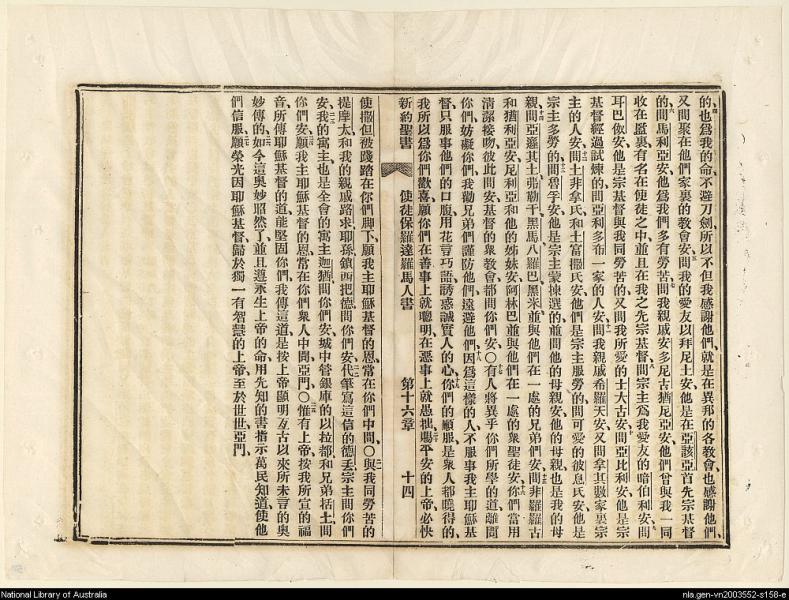 的也爲我的命不避刀劍所以不但我感謝他們就是在異邦的各教會也感謝他們
又問聚在他們家裏的教會安問我的愛友以拜尼土安他是在亞該亞首先宗基督
的問馬利亞安他爲我們多有勞苦問我親戚安多尼古猶尼亞安他們曾與我一同
收在監裏有名在使徒之中並且在我之先宗基督問宗主爲我愛友的暗伯利安問
耳巴伮安他是宗基督與我同勞苦的又問我所愛的士大古安問亞比利安他是宗
基督經過試煉的問亞利多布一家的人安問我親戚希羅天安又問拿其數家裏宗
主的人安問土非拿氏和土富撒氏安他們是宗主服勞的問可愛的彼息氏安他是
宗主多勞的問魯孚安他是宗主蒙揀選的並問他的母親安他的母親也是我的母
親問亞遜其土弗勒干黑馬八羅巴黑米並與他們在一處的兄弟們安問非羅羅古
和猶利亞安尼利亞和他的姊妹安阿林巴並與他們在一處的衆聖徒安你們當用
清潔接吻彼此問安基督的衆教會都問你們安〇有人將異乎你們所學的道離間
你們妨礙你們我勸兄弟們謹防他們遠避他們因爲這樣的人不服事我主耶穌基
督只服事他們的口腹用花言巧語誘惑誠實人的心你們的順服是衆人都曉得的
我所以爲你們歡喜願你們在善事上就聰明在惡事上就愚拙賜平安的上帝必快
新約聖書 使徒保羅達羅馬人書 第十六章 十四
使撒但被踐踏在你們脚下願我主耶穌基督的恩常在你們中間〇與我同勞苦的
提摩太和我的親戚路求耶孫鎖西把德問你們安代筆寫這信的德丢宗主問你們
安我的寓主也是全會的寓主迦猶問你們安城中管銀庫的以拉都和兄弟括土問
你們安願我主耶穌基督的恩常在你們衆人中間亞門〇惟有上帝按我所宣的福
音所傳耶穌基督的道能堅固你們我傳這道是按上帝顯明亙古以來所未言的奥
妙傳的如今這奥妙昭然了並且遵永生上帝的命用先知的書指示萬民知道使他
們信服願榮光因耶穌基督歸於獨一有智慧的上帝至於世世亞門
National Library of Australia
nla.gen-vn2003552-s158-e